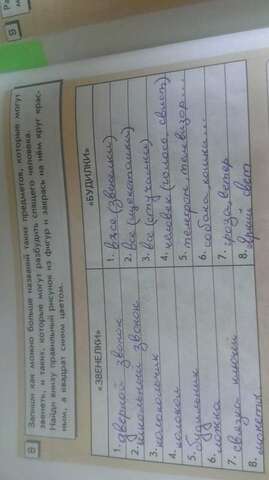 9
8
Запиши как можно больше названий таких предметов, которые могут
звенеть, и таких, которые могут разбудить спящего человека.
Найди внизу правильный рисунок из фигур и закрась на нём круг крас-
ным, а квадрат синим цветом.
«ЗВЕНЕЛКИ»
1. дверной звонок
2. школьный звонок
3. колокольчик
4. колокол
5. будильник
6. ложка
7. связка ключей
8. монеты
«БУДИЛКИ»
1. все (звенелки)
2. все
3. все (стучалки)
4. человек (голос свист)
5. телефон телевизор...
6. собака кошка...
7. гроза, ветер
8. яркий свет